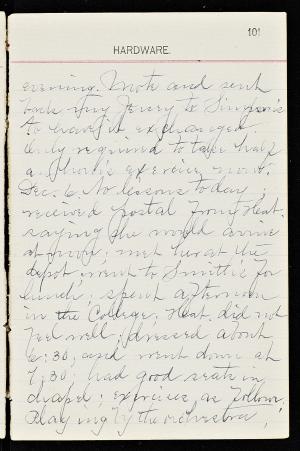 101
HARDWARE.
evening. Wrote and sent
back my Jersey to Simpson's
to have it exchanged.
Only required to take half
an hour's exercise now.
Dec. 6. No lessons today;
received postal from Hat.
saying she would arrive
at; met her at the
depot, went to Smith's for
lunch; spent afternoon
in the College; Hat. did not
feel well; dressed about
6:30, and went down at
7:30; had good seats in
chapel; exercises as follows:
Playing by the orchestra;